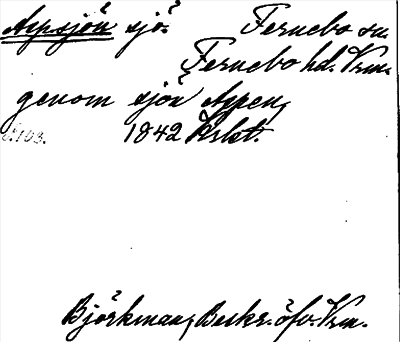 Aspsjön sjö. Fernebo sn.
Fernebo hd. Vrm.
genom sjön Aspen,
1842 Krkt.
s. 103.
Björkman, Beskr. öfv. Vrm.